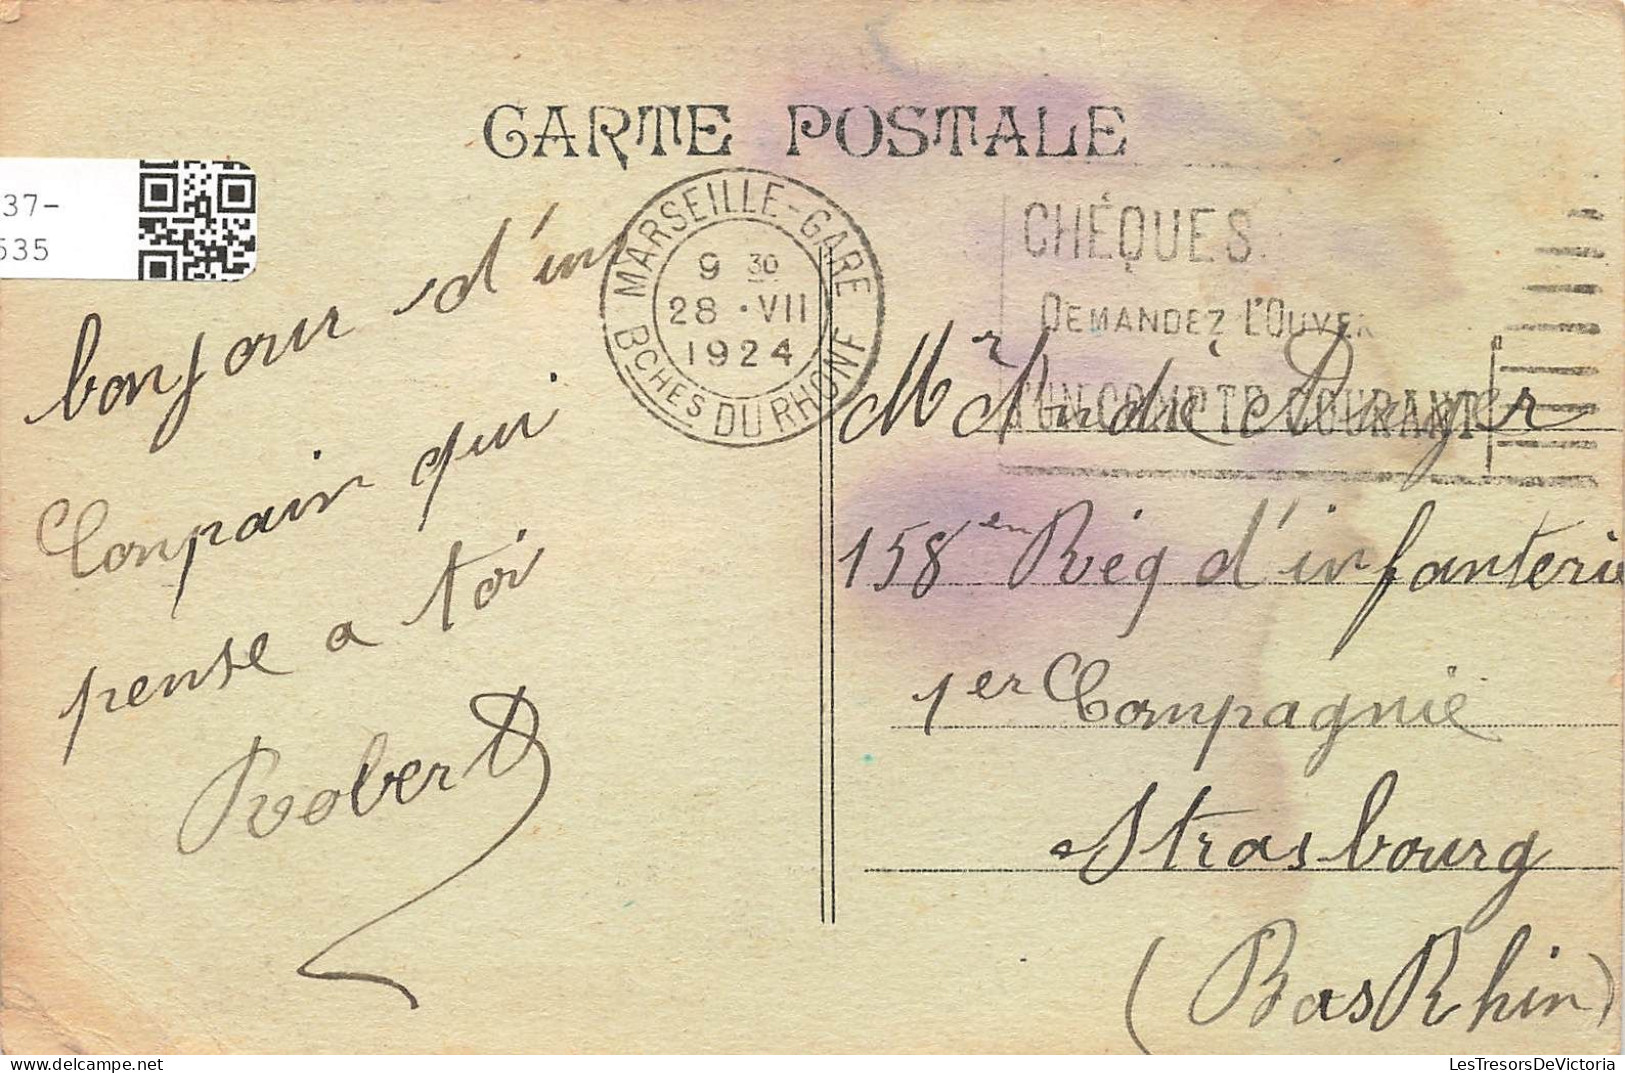 CARTE POSTALE
37-
535
MARSEILLE-GARE
9 30
28 · VII
1924
BCHES DU RHONE
CHÉQUES
DEMANDEZ L'OUVER
D'UN COMPTE COURANT
bonjour d'un
Conpain qui
pense a toi
Robert
Mr André
158 en Rég d'infanterie
1er Compagnie
Strasbourg
(Bas Rhin)
LesTresorsDeVictoria